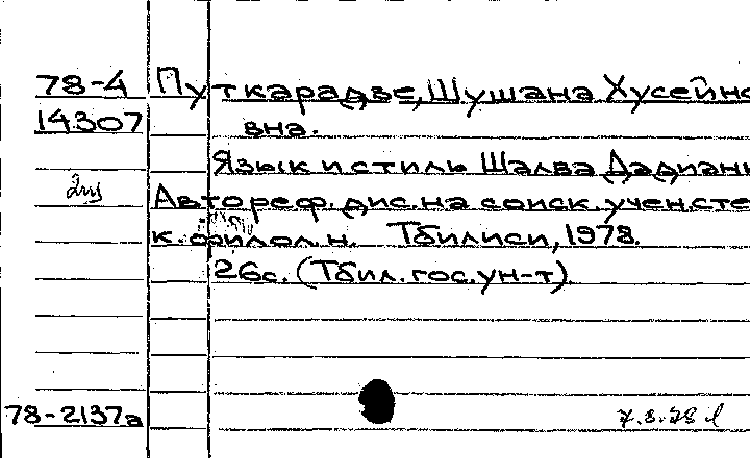 78-4 Путкарадзе, Шушана Хусейно
14307 вна.
Язык и стиль Шалва Дадиани
2иу
Автореф. дис. на соиск. учен. сте
к. филол. н. Тбилиси, 1978.
26с. (Тбил. гос. ун-т).
78-2137а 7.8.78